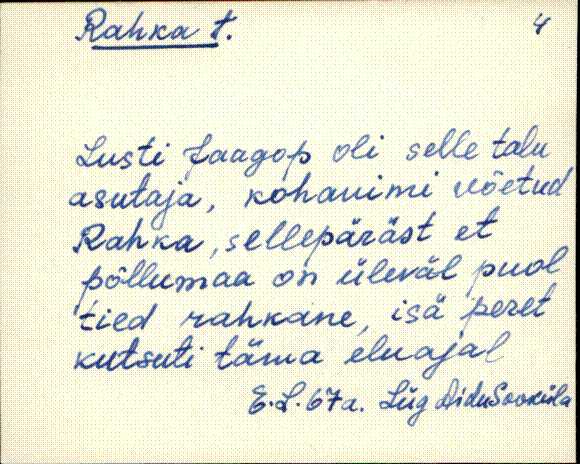 Rahka t. 4
Lusti Jaagop oli selle talu
asutaja, kohanimi võetud
Rahka, selleperäst et
põllumaa on üleväl puol
tied rahkane, isä peret
kutsuti täma eluajal
E.L. 67a. Lüg Aidu Sooküla